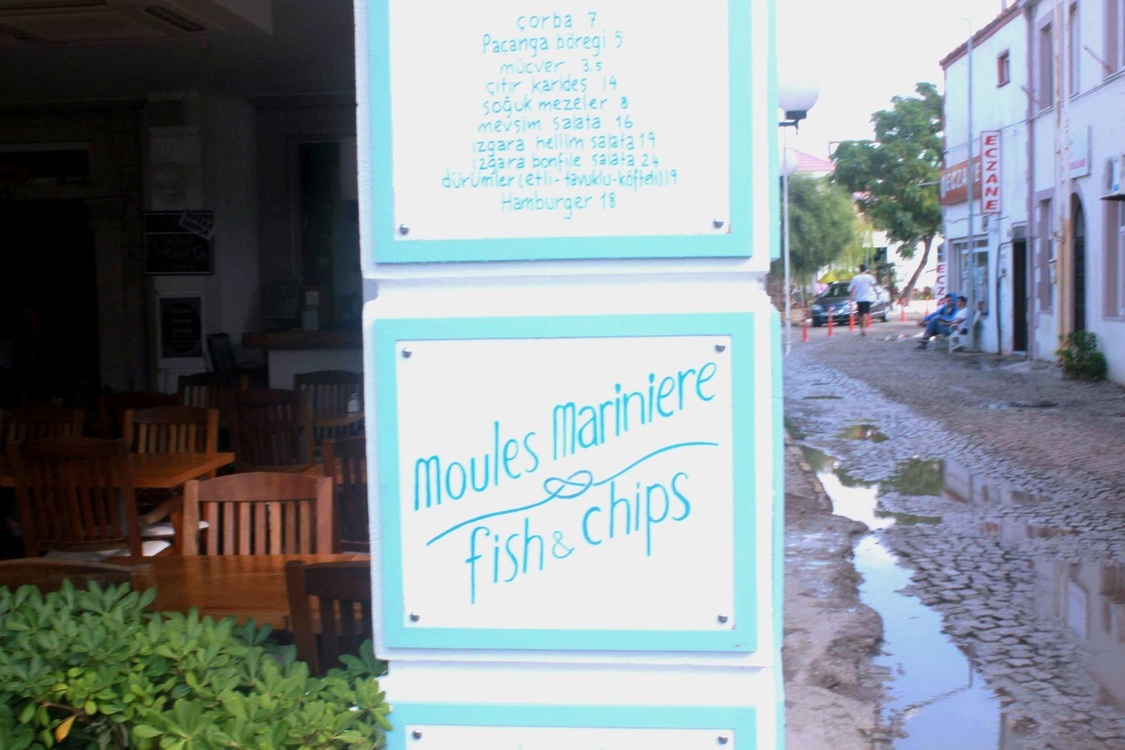 çorba 7
Paçanga böreği 5
mücver 3.5
çıtır karides 14
soğuk mezeler 8
mevsim salata 16
ızgara hellim salata 19
ızgara bonfile salata 24
dürümler (etli-tavuklu-köfteli) 19
Hamburger 18
Moules Mariniere
fish & chips
ECZANE